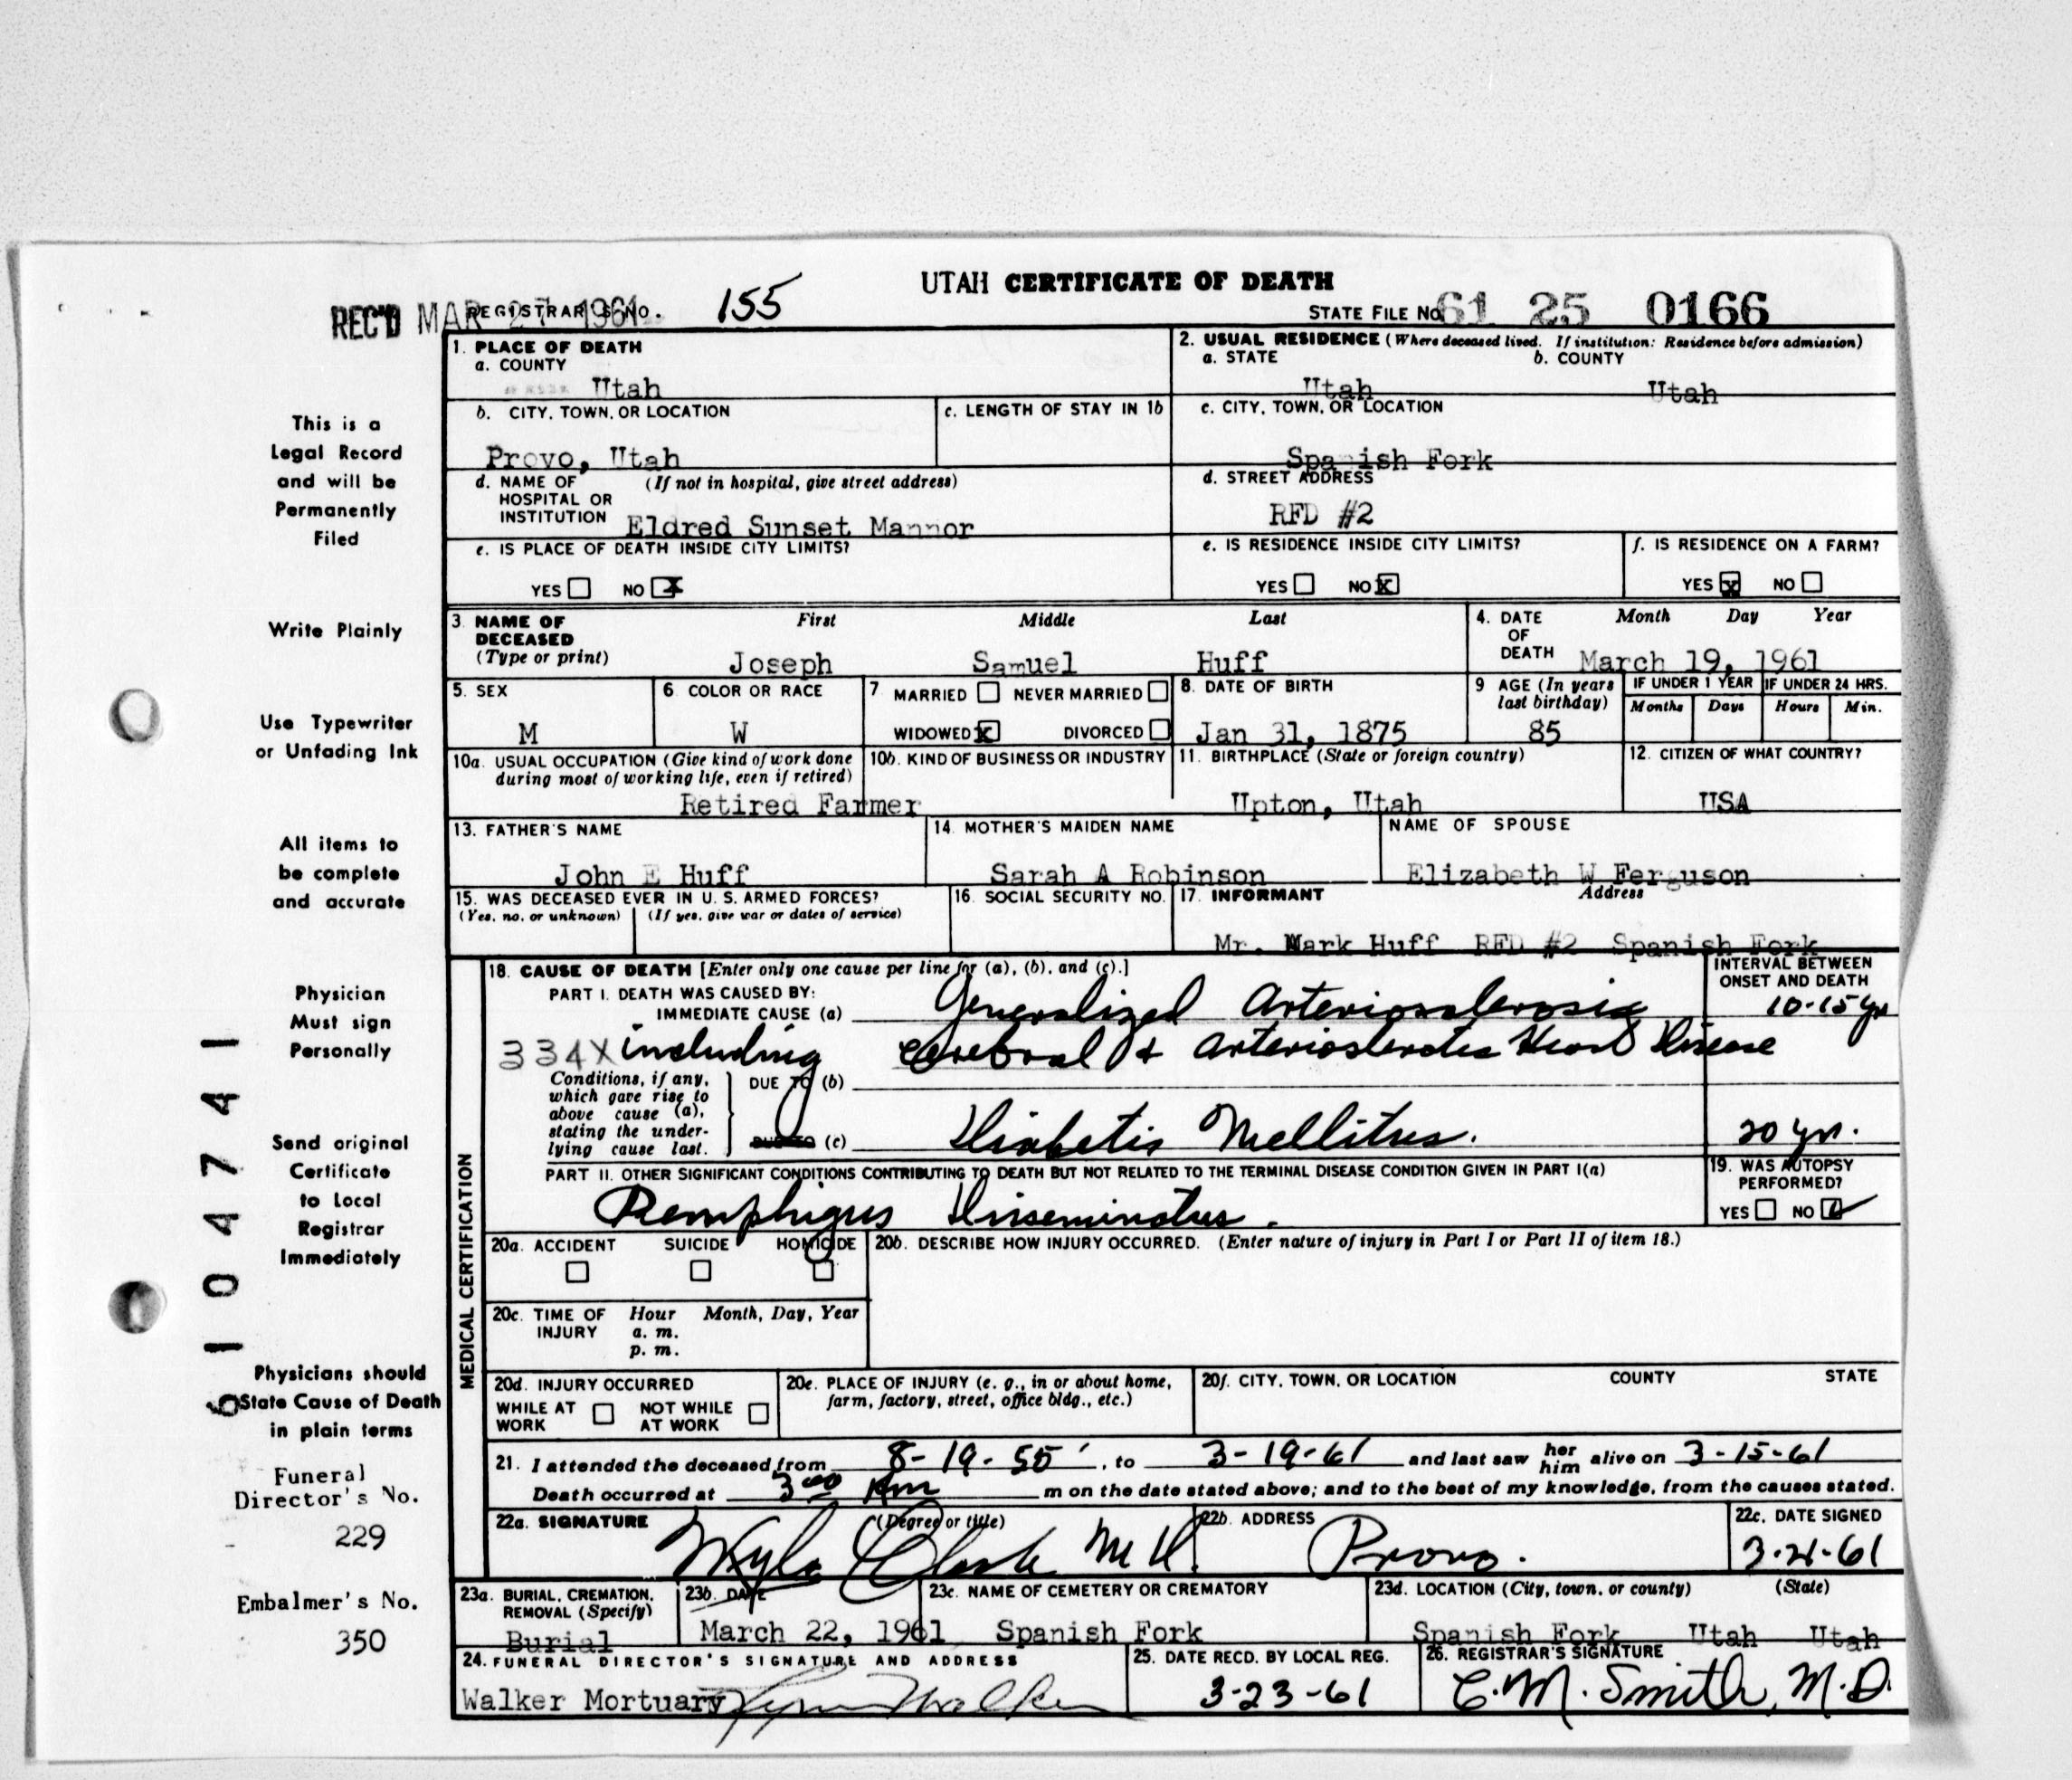 UTAH CERTIFICATE OF DEATH
REC'D MAR 27 1961 REGISTRAR'S NO. 155 STATE FILE NO. 61 25 0166
1. PLACE OF DEATH
a. COUNTY
Utah
2. USUAL RESIDENCE (Where deceased lived. If institution: Residence before admission)
a. STATE b. COUNTY
Utah Utah
b. CITY, TOWN, OR LOCATION
Provo, Utah
c. LENGTH OF STAY IN 1b
c. CITY, TOWN, OR LOCATION
Spanish Fork
d. NAME OF (If not in hospital, give street address)
HOSPITAL OR
INSTITUTION Eldred Sunset Mannor
d. STREET ADDRESS
RFD #2
e. IS PLACE OF DEATH INSIDE CITY LIMITS?
YES NO X
e. IS RESIDENCE INSIDE CITY LIMITS?
YES NO X
f. IS RESIDENCE ON A FARM?
YES X NO
3. NAME OF DECEASED (Type or print)
First Middle Last
Joseph Samuel Huff
4. DATE OF DEATH Month Day Year
March 19, 1961
5. SEX
M
6. COLOR OR RACE
W
7. MARRIED NEVER MARRIED
WIDOWED X DIVORCED
8. DATE OF BIRTH
Jan 31, 1875
9. AGE (In years last birthday)
85
IF UNDER 1 YEAR IF UNDER 24 HRS.
Months Days Hours Min.
10a. USUAL OCCUPATION (Give kind of work done
during most of working life, even if retired)
Retired Farmer
10b. KIND OF BUSINESS OR INDUSTRY
11. BIRTHPLACE (State or foreign country)
Upton, Utah
12. CITIZEN OF WHAT COUNTRY?
USA
13. FATHER'S NAME
John E Huff
14. MOTHER'S MAIDEN NAME
Sarah A Robinson
NAME OF SPOUSE
Elizabeth W Ferguson
15. WAS DECEASED EVER IN U. S. ARMED FORCES?
(Yes, no, or unknown) (If yes, give war or dates of service)
16. SOCIAL SECURITY NO.
17. INFORMANT Address
Mr. Mark Huff RFD #2 Spanish Fork
MEDICAL CERTIFICATION
18. CAUSE OF DEATH [Enter only one cause per line for (a), (b), and (c).]
INTERVAL BETWEEN
ONSET AND DEATH
PART I. DEATH WAS CAUSED BY:
IMMEDIATE CAUSE (a) Generalized Arteriosclerosis 10-15 yr
334X including cerebral & arteriosclerotic Heart Disease
Conditions, if any,
which gave rise to
above cause (a),
stating the under-
lying cause last.
DUE TO (b)
DUE TO (c) Diabetis Mellitus. 20 yr.
PART II. OTHER SIGNIFICANT CONDITIONS CONTRIBUTING TO DEATH BUT NOT RELATED TO THE TERMINAL DISEASE CONDITION GIVEN IN PART I(a)
Pemphigus Disseminatus.
19. WAS AUTOPSY
PERFORMED?
YES NO ✓
20a. ACCIDENT SUICIDE HOMICIDE
20b. DESCRIBE HOW INJURY OCCURRED. (Enter nature of injury in Part I or Part II of item 18.)
20c. TIME OF INJURY Hour Month, Day, Year
a. m.
p. m.
20d. INJURY OCCURRED
WHILE AT WORK NOT WHILE AT WORK
20e. PLACE OF INJURY (e. g., in or about home,
farm, factory, street, office bldg., etc.)
20f. CITY, TOWN, OR LOCATION COUNTY STATE
21. I attended the deceased from 8-19-55, to 3-19-61 and last saw her him alive on 3-15-61
Death occurred at 3 00 Am m on the date stated above; and to the best of my knowledge, from the causes stated.
22a. SIGNATURE (Degree or title)
Clark M D.
22b. ADDRESS
Provo.
22c. DATE SIGNED
3-21-61
23a. BURIAL, CREMATION,
REMOVAL (Specify)
Burial
23b. DATE
March 22, 1961
23c. NAME OF CEMETERY OR CREMATORY
Spanish Fork
23d. LOCATION (City, town, or county) (State)
Spanish Fork Utah Utah
24. FUNERAL DIRECTOR'S SIGNATURE AND ADDRESS
Walker Mortuary Walker
25. DATE RECD. BY LOCAL REG.
3-23-61
26. REGISTRAR'S SIGNATURE
C. M. Smith, M.D.
This is a
Legal Record
and will be
Permanently
Filed
Write Plainly
Use Typewriter
or Unfading Ink
All items to
be complete
and accurate
Physician
Must sign
Personally
Send original
Certificate
to Local
Registrar
Immediately
Physicians should
State Cause of Death
in plain terms
Funeral
Director's No.
229
Embalmer's No.
350
6104741